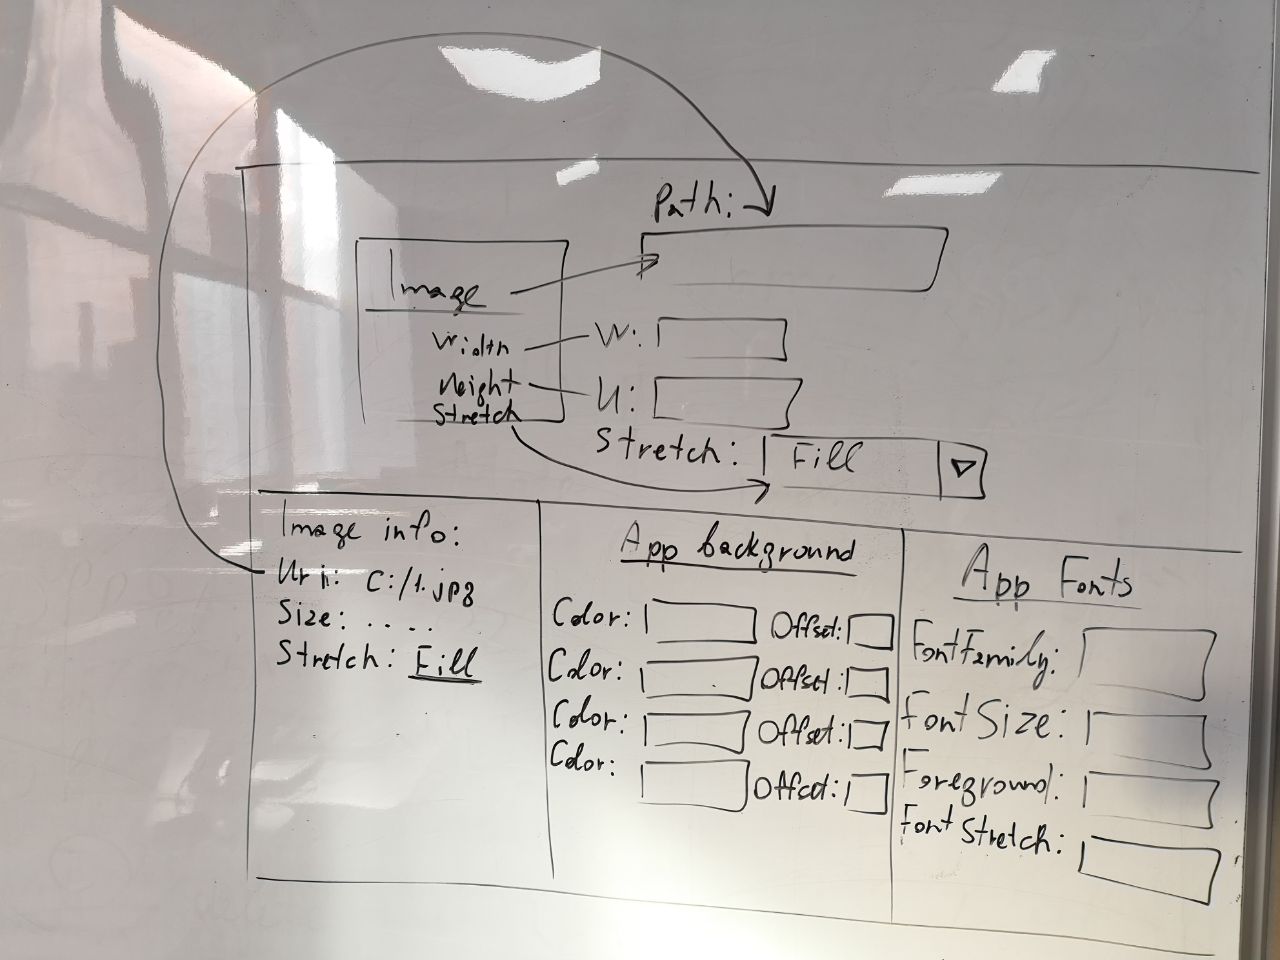 Path:
Image
Width
W:
Height
H:
Stretch
Stretch: Fill
Image info:
Uri: C:/1.jpg
Size: ....
Stretch: Fill
App background
Color: Offset:
Color: Offset:
Color: Offset:
Color: Offset:
App Fonts
FontFamily:
FontSize:
Foreground:
Font Stretch: